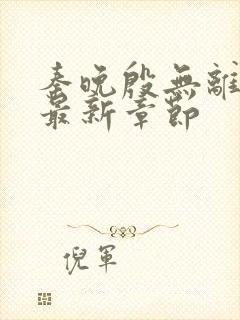 秦晚殷無離
最新章節
倪軍